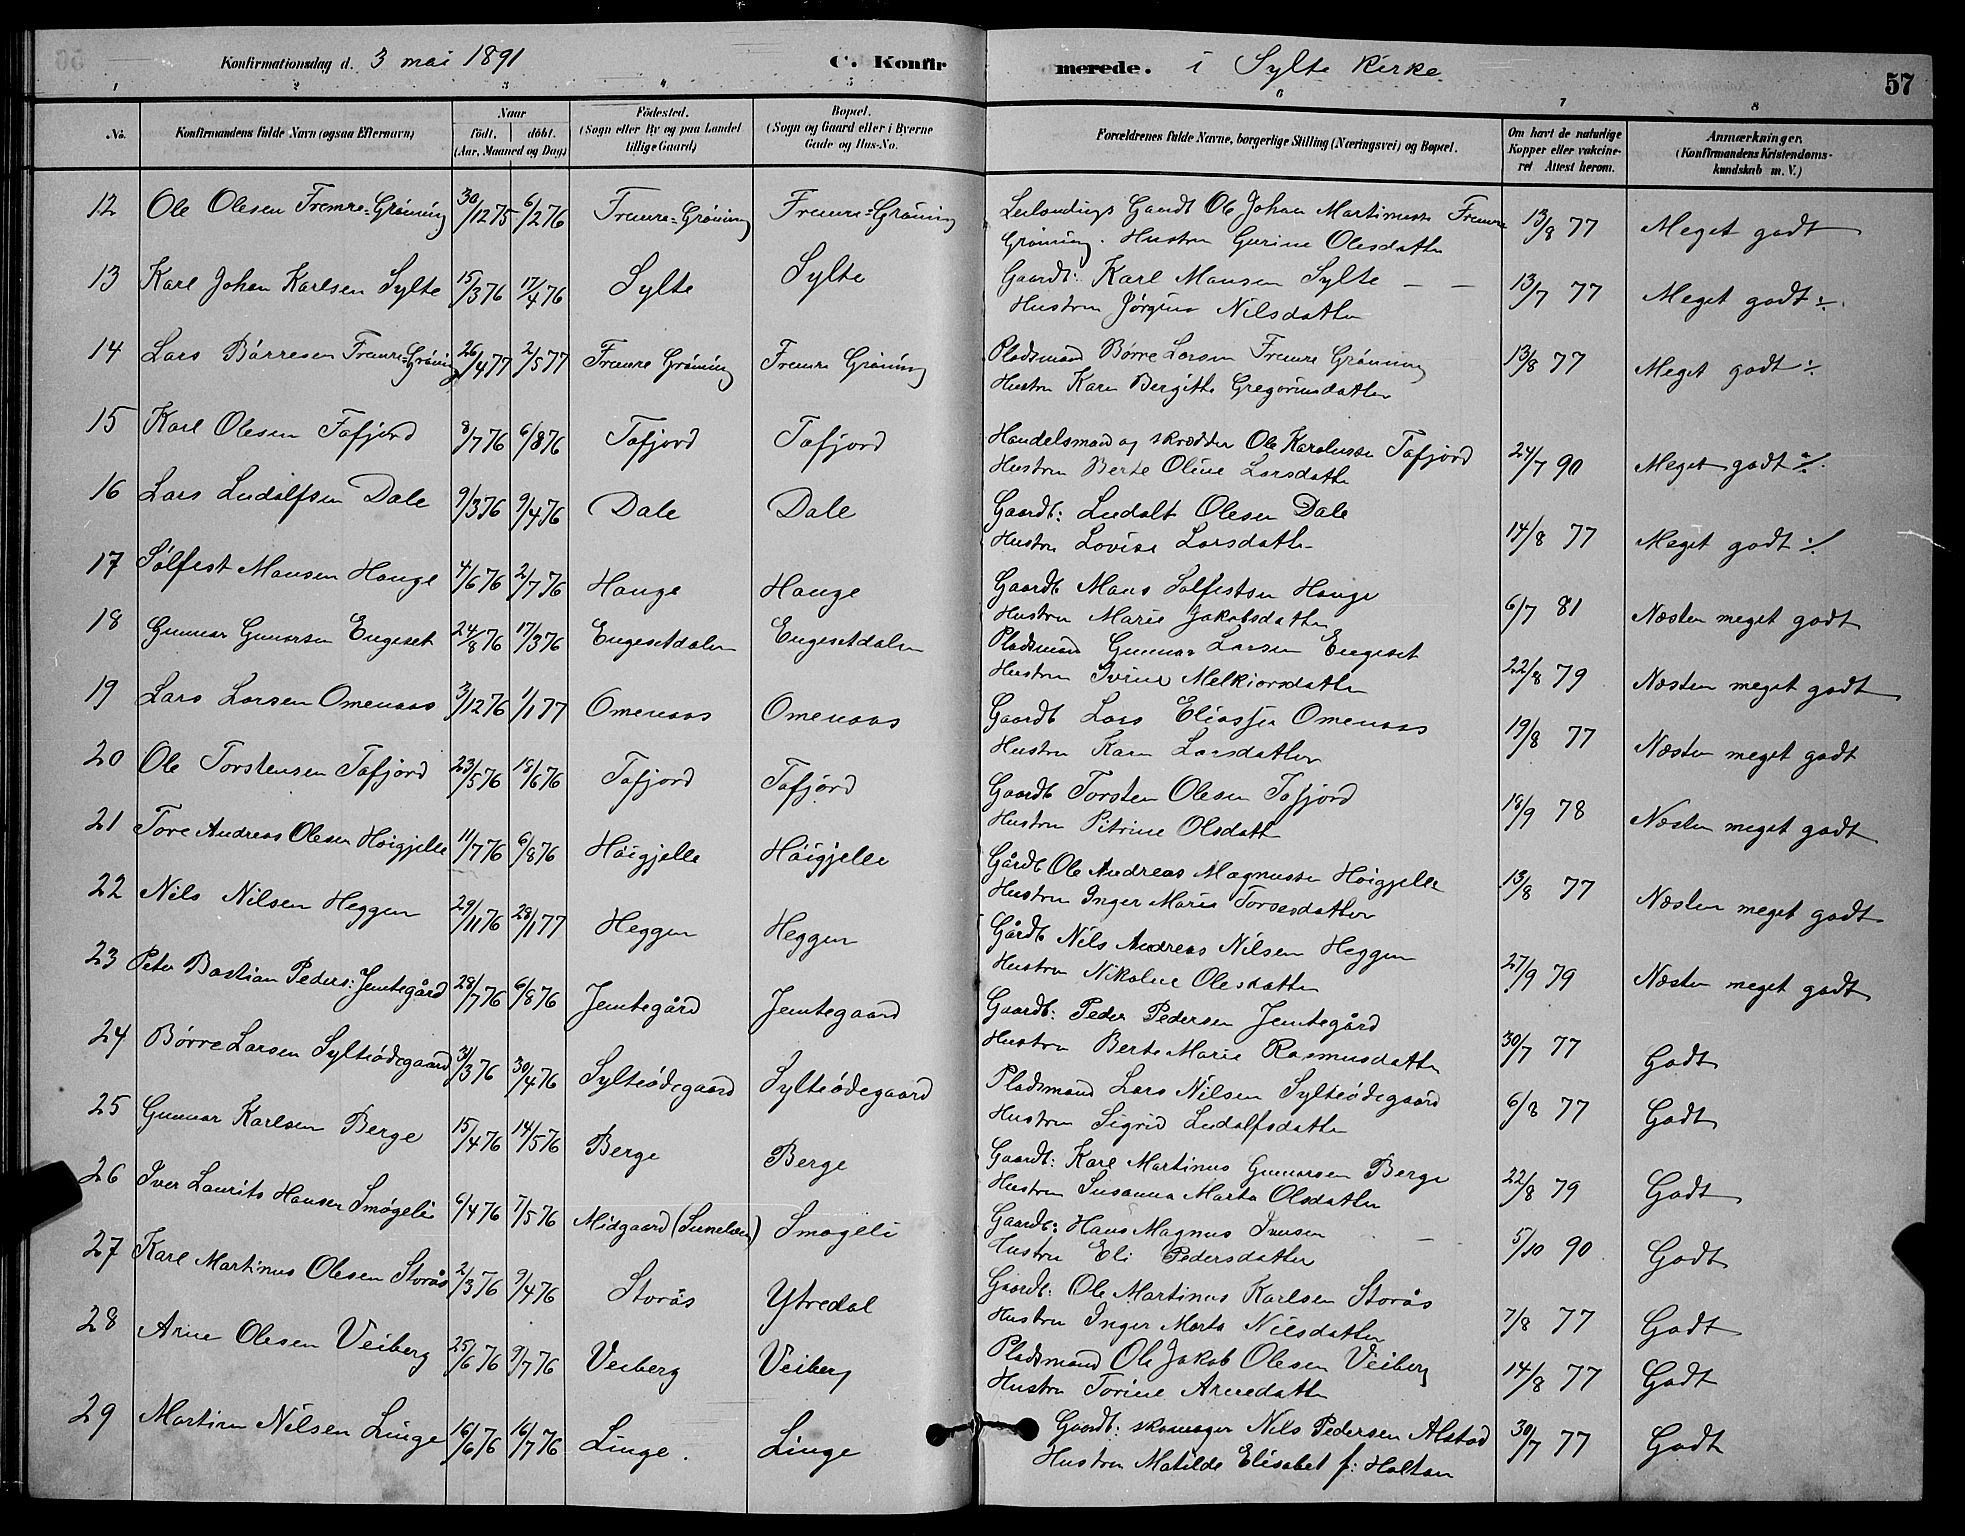 Konfirmationsdag d. 3 mai 1891 C. Konfirmerede. i Sylte Kirke. 57
1 2 3 4 5 6 7 8
No. Konfirmandens fulde Navn (ogsaa Efternavn) Naar født. døbt. (Aar, Maaned og Dag) Fødested. (Sogn eller By og paa Landet tillige Gaard) Bopæl. (Sogn og Gaard eller i Byerne Gade og Hus-No. Forældrenes fulde Navne, borgerlige Stilling (Næringsvei) og Bopæl. Om havt de naturlige Kopper eller vakcineret Attest herom. Anmærkninger. (Konfirmandens Kristendomskundskab m. V.)
12 Ole Olesen Fremre=Grøning 30/12 75 6/2 76 Fremre=Grøning Fremre=Grøning Leilændings Gaardb Ole Johan Martinussen Fremre 13/8 77 Meget godt
Grøning. Hustru Gurine Olesdatter
13 Karl Johan Karlsen Sylte 15/3 76 17/4 76 Sylte Sylte Gaardb: Karl Mansen Sylte — — 13/7 77 Meget godt ÷
Hustru Jørgine Nilsdatter
14 Lars Børresen Fremre=Grøning 26/4 77 2/5 77 Fremre Grøning Fremre Grøning Pladsmand Børre Larsen Fremre Grøning 13/8 77 Meget godt ÷
Hustru Karen Bergitte Gregoriusdatter
15 Karl Olesen Tafjord 8/7 76 6/8 76 Tafjord Tafjord Handelsmand og skrædder Ole Karolussen Tafjord 24/7 90 Meget godt ÷
Hustru Berte Oline Larsdatter
16 Lars Ludolfsen Dale 9/3 76 9/4 76 Dale Dale Gaardb: Ludolf Olesen Dale 14/8 77 Meget godt ÷
Hustru Lovise Larsdatter
17 Sølfest Mansen Hauge 4/6 76 2/7 76 Hauge Hauge Gaardb Mans Sølfestsen Hauge 6/7 81 Næsten meget godt
Hustru Marie Jakobsdatter
18 Gunnar Gunarsen Engeset 24/8 76 17/3 76 Engesetdalen Engesetdalen Pladsmand Gunnar Larsen Engeset 22/8 79 Næsten meget godt
Hustru Ivrine Melkiorsdatter
19 Lars Larsen Omenaas 3/12 76 1/1 77 Omenaas Omenaas Gaardb Lars Eliassen Omenaas 19/8 77 Næsten meget godt
Hustru Karen Larsdatter
20 Ole Torstensen Tafjord 23/5 76 18/6 76 Tafjord Tafjord Gaardb Torsten Olesen Tafjord 18/9 78 Næsten meget godt
Hustru Pitrine Olsdatt
21 Tore Andreas Olesen Høigjelle 11/7 76 6/8 76 Høigjelle Høigjelle Gårdb Ole Andreas Magnussen Høigjelle 13/8 77 Næsten meget godt
Hustru Inger Marie Torsesdatter
22 Nils Nilsen Heggen 29/11 76 28/1 77 Heggen Heggen Gårdb Nils Andreas Nilsen Heggen 27/9 79 Næsten meget godt
Hustru Nikoline Olesdatter
23 Peter Bastian Peders: Jemtegård 28/7 76 6/8 76 Jemtegård Jemtegaard Gaardb: Peder Pedersen Jemtegård 30/7 77 Godt
Hustru Berte Marie Rasmusdatter
24 Børre Larsen Sylteødegaard 31/3 76 30/4 76 Sylteødegaard Sylteødegaard Pladsmand Lars Nilsen Sylteødegaard 6/8 77 Godt
Hustru Sigrid Ludolfsdatter
25 Gunnar Karlsen Berge 15/4 76 14/5 76 Berge Berge Gaardb: Karl Martinus Gunnarsen Berge 22/8 79 Godt
Hustru Susanna Marta Olsdatter
26 Iver Laurits Hansen Smøgeli 6/4 76 7/5 76 Midgaard (Sunelven) Smøgeli Gaardb: Hans Magnus Iversen — 5/10 90 Godt
Hustru Eli Pedersdatter
27 Karl Martinus Olesen Storås 2/3 76 9/4 76 Storås Ytredal Gaardb: Ole Martinus Karlsen Storås 7/8 77 Godt
Hustru Inger Marta Nilsdatter
28 Arne Olesen Veiberg 25/6 76 9/7 76 Veiberg Veiberg Pladsmand Ole Jakob Olesen Veiberg 14/8 77 Godt
Hustru Torine Arnedatter
29 Martin Nilsen Linge 16/6 76 16/7 76 Linge. Linge Gaardb: skomager Nils Pedersen Alstad 30/7 77 Godt
Hustru Matilde Elisabet f: Holtan